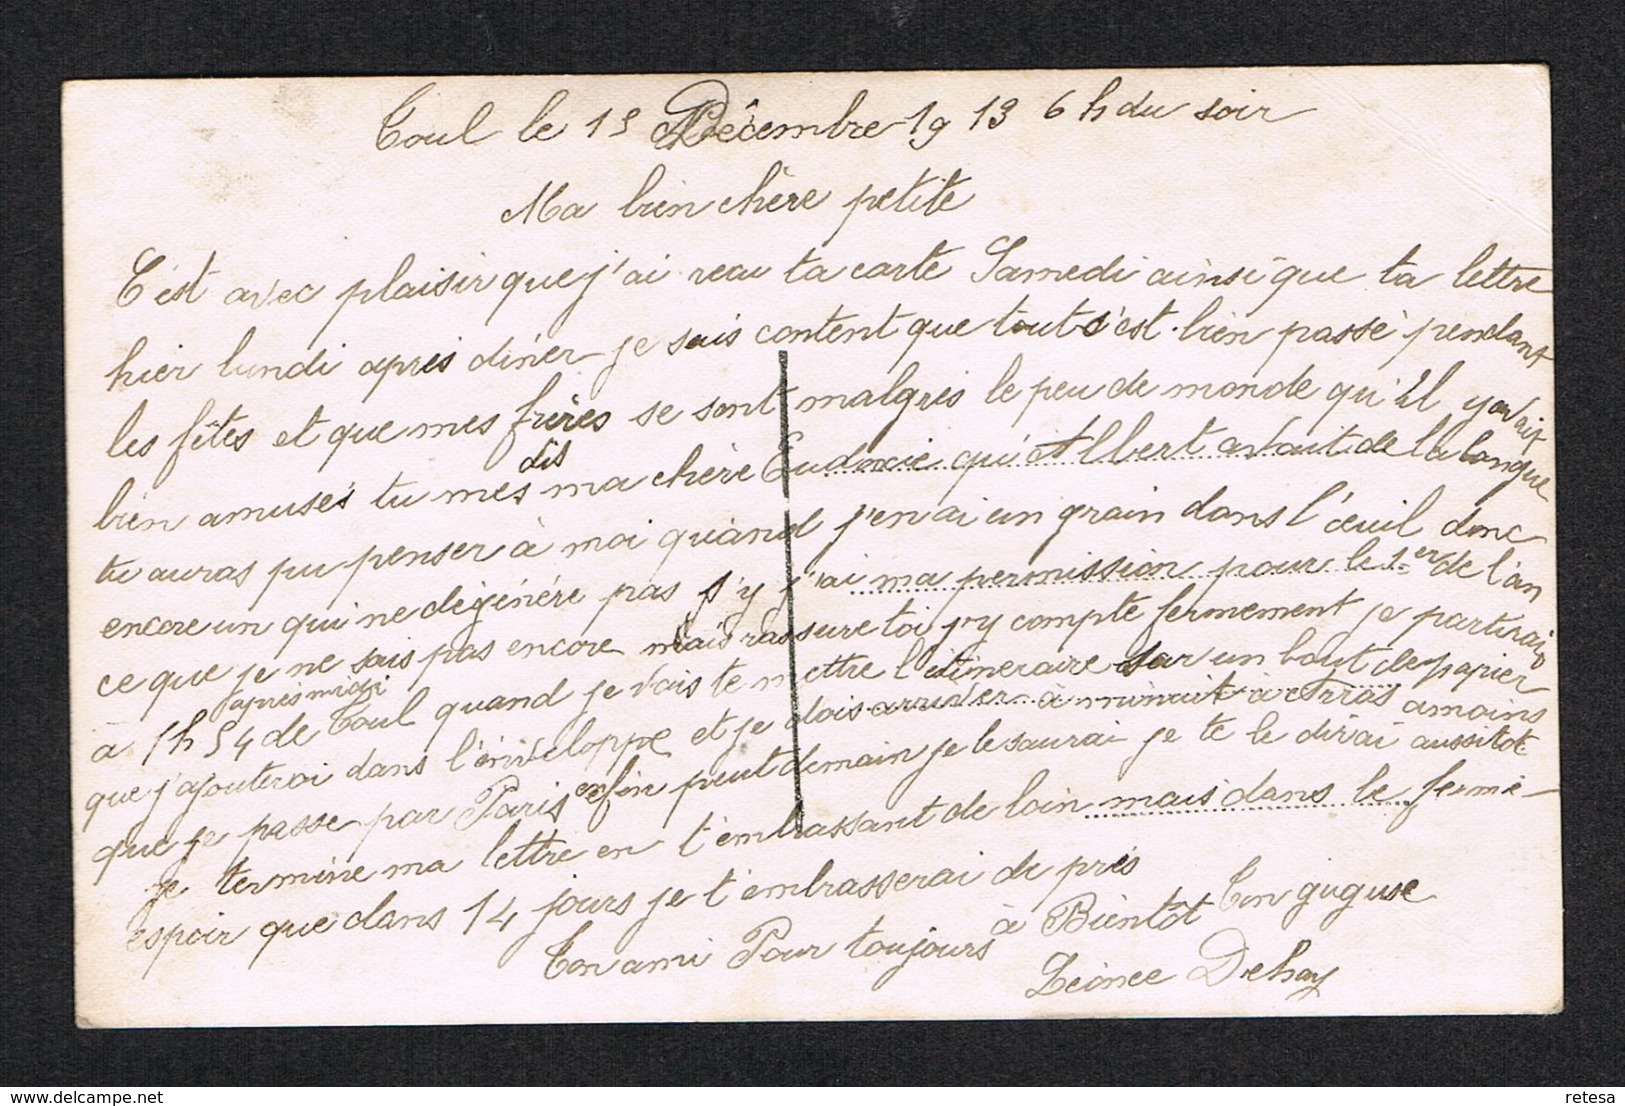 Toul le 15 Décembre 1913 6 h du soir
Ma bien chère petite
C'est avec plaisir que j'ai reau ta carte Samedi ainsi que ta lettre
hier lundi apris diner je suis content que tout c'est bien passé pendant
les fêtes et que mes frères se sont malgris le peu de monde qu'il y avait
bien amusés tu mes dis ma chère Eudoxie qu'Albert avait de la langue
tu auras pu penser à moi quand j'en ai un grain dans l'œuil donc
encore un qui ne dégénére pas s'y j'ai ma permission pour le 1er de l'an
ce que je ne sais pas encore mais rassure toi j'y compte fermement je partirais
à 1h 54 après midi de Toul quand je vais te mettre l'itineraire sur un bout de papier
que j'ajouterai dans l'énveloppe et je dois arriver à minuit à Arras amoins
que je passe par Paris enfin peut demain je le saurai je te le dirai aussitot
je termine ma lettre en t'embrassant de loin mais dans le ferme
espoir que dans 14 jours je t'embrasserai de près
à Bientôt Ton guguse
Ton ami Pour toujours
Léonce Dehay
retesa